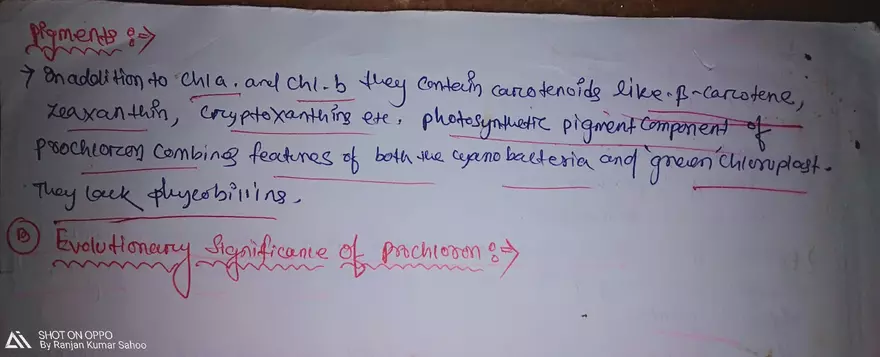 Pigments :⇒
→ In addition to Chl a. and Chl.-b they contain carotenoids like - β-carotene,
zeaxanthin, cryptoxanthins etc. photosynthetic pigment component of
prochloron combines features of both the cyanobacteria and green chloroplast.
They lack phycobillins.
(B) Evolutionary Significance of prochloron :⇒
SHOT ON OPPO
By Ranjan Kumar Sahoo